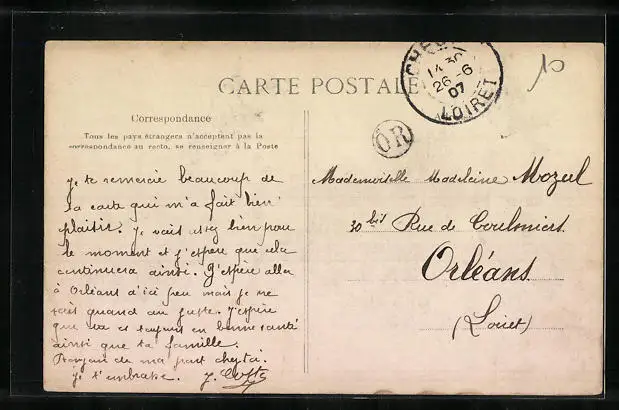 CARTE POSTALE
Correspondance
Tous les pays étrangers n'acceptent pas la
correspondance au recto, se renseigner à la Poste
Je te remercie beaucoup de
ta carte qui m'a fait bien
plaisir. Je vais assez bien pour
le moment et j'espère que cela
continuera ainsi. J'espère aller
à Orléans d'ici peu mais je ne
sais quand au juste. J'espère
que tu es toujours en bonne santé
ainsi que ta famille.
Bonjour de ma part chez toi.
Je t'embrasse. J.
14 30
26-6
07
LOIRET
OR
10
Mademoiselle Madeleine Mozul
30 bis Rue de Coulmiers
Orléans
(Loiret)